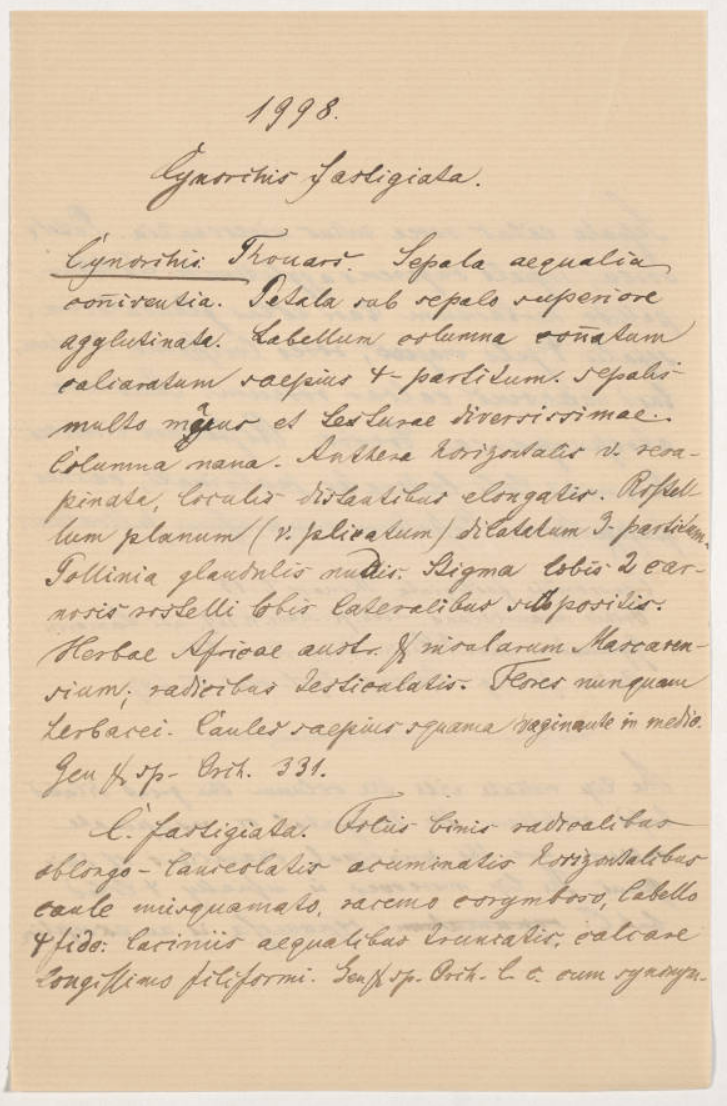 1998.
Cynorchis fastigiata.
Cynorchis. Thouars. Sepala aequalia
con̄iventia. Petala sub sepalo superiore
agglutinata. Labellum columna con̄atum
calcaratum saepius 4-partitum. sepalis
multo majus et texturae diversissimae.
Columna nana. Anthera horizontalis v. resu-
pinata, loculis distantibus elongatis. Rostel-
lum planum (v. plicatum) dilatatum 3-partitum.
Pollinia glandulis nudis. Stigma lobis 2 car-
nosis rostelli lobis lateralibus suppositis.
Herbae Africae austr. & insularum Mascaren-
sium; radicibus testiculatis. Flores nunquam
herbacei. Caules saepius squama vaginante in medio.
Gen & sp- Orch. 331.
C. fastigiata. Foliis binis radicalibus
oblongo-lanceolatis acuminatis horizontalibus
caule unisquamato, racemo corymboso, labello
4 fido: laciniis aequalibus truncatis, calcare
longissimo filiformi. Gen & sp. Orch. l. c. cum synonym-